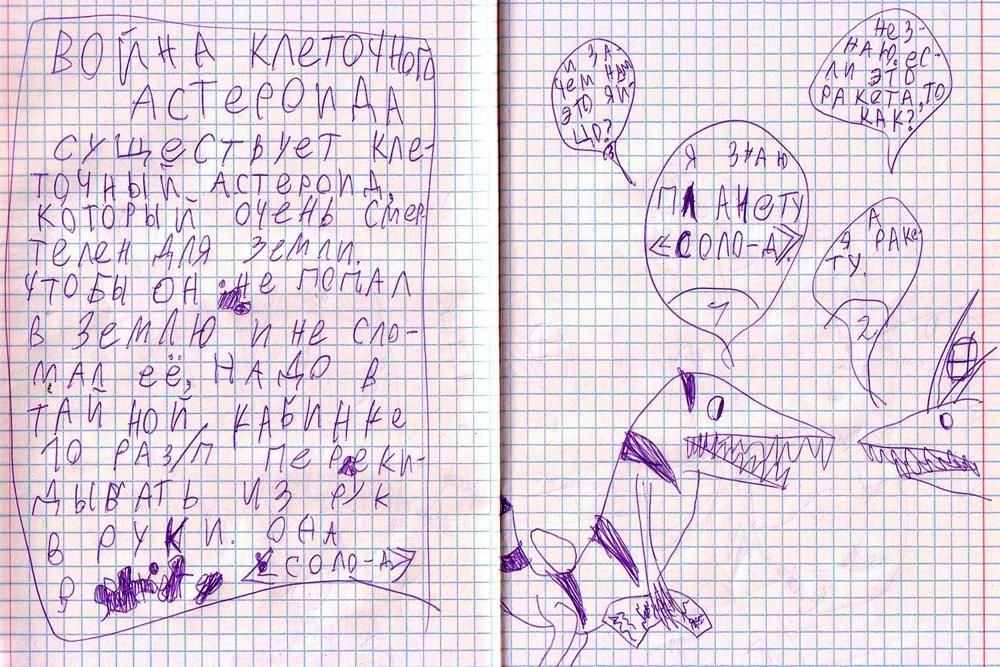 ВОЙНА КЛЕТОЧНОГО
АСТЕРОИДА
СУЩЕСТВУЕТ КЛЕ-
ТОЧНЫЙ АСТЕРОИД,
КОТОРЫЙ ОЧЕНЬ СМЕР
ТЕЛЕН ДЛЯ ЗЕМЛИ.
ЧТОБЫ ОН НЕ ПОПАЛ
В ЗЕМЛЮ И НЕ СЛО-
МАЛ ЕЁ, НАДО В
ТАЙНОЙ КАБИНКЕ
10 РАЗ/П ПЕРЕКИ-
ДЫВАТЬ ИЗ РУК
В РУКИ. ОНА
В «СОЛО-Д»
И ЗА-
ЧЕМ НАМ
ЭТО ЯЙ
ЦО?
3
НЕЗ-
НАЮ. ЕС-
ЛИ ЭТО
РАКЕТА, ТО
КАК?
Я ЗНАЮ
ПЛАНЕТУ
«СОЛО-Д»
1
А
Я РАКЕ
ТУ.
2